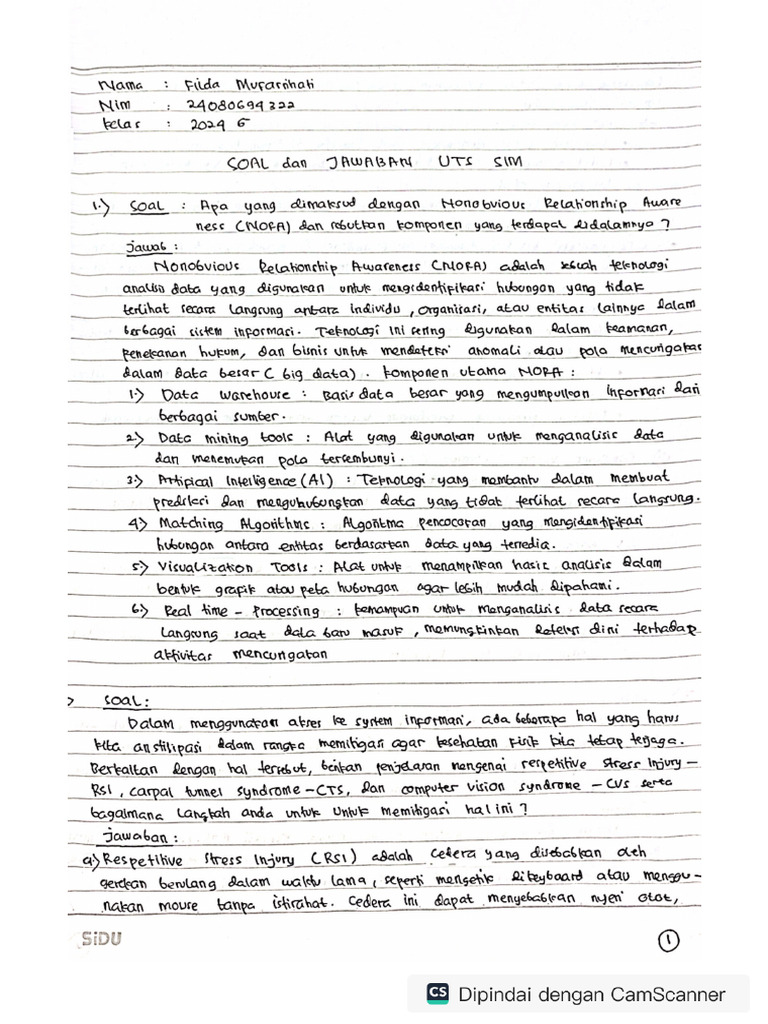 Nama : Filda Mufarrihati
Nim : 24080694322
Kelas : 2024 G
SOAL dan JAWABAN UTS SIM
1.) SOAL : Apa yang dimaksud dengan Nonobvious Relationship Aware
ness (NORA) dan sebutkan komponen yang terdapat didalamnya ?
Jawab :
Nonobvious Relationship Awareness (NORA) adalah sebuah teknologi
analisis data yang digunakan untuk mengidentifikasi hubungan yang tidak
terlihat secara langsung antara individu, organisasi, atau entitas lainnya dalam
berbagai sistem informasi. Teknologi ini sering digunakan dalam keamanan,
penekanan hukum, dan bisnis untuk mendeteksi anomali atau pola mencurigakan
dalam data besar ( big data) . Komponen utama NORA :
1.) Data Warehouse : Basis data besar yang mengumpulkan informasi dari
berbagai sumber.
2.) Data mining tools : Alat yang digunakan untuk menganalisis data
dan menemukan pola tersembunyi.
3.) Artipical Intelligence (AI) : Teknologi yang membantu dalam membuat
prediksi dan menguhubungkan data yang tidak terlihat secara langsung.
4) Matching Algorithms : Algoritma pencocokan yang mengidentifikasi
hubungan antara entitas berdasarkan data yang tersedia.
5.) Visualization Tools : Alat untuk menampilkan hasil analisis dalam
bentuk grafik atau peta hubungan agar lebih mudah dipahami.
6.) Real time - Processing : kemampuan untuk menganalisis data secara
langsung saat data baru masuk, memungkinkan deteksi dini terhadap
aktivitas mencurigakan
) SOAL :
Dalam menggunakan akses ke system informasi, ada beberapa hal yang harus
kita anstilipasi dalam rangka memitigasi agar kesehatan fisik bila tetap terjaga.
Berkaitan dengan hal tersebut, berikan penjelasan mengenai respetitive stress Injury -
RSI, carpal tunnel syndrome - CTS, dan computer vision syndrome - CVS serta
bagaimana langkah anda untuk untuk memitigasi hal ini ?
Jawaban :
a) Respetitive Stress Injury (RSI) adalah cedera yang disebabkan oleh
gerakan berulang dalam waktu lama, seperti mengetik di keyboard atau menggu-
nakan mouse tanpa istirahat. Cedera ini dapat menyebabkan nyeri otot,
SiDU
1
CS Dipindai dengan CamScanner